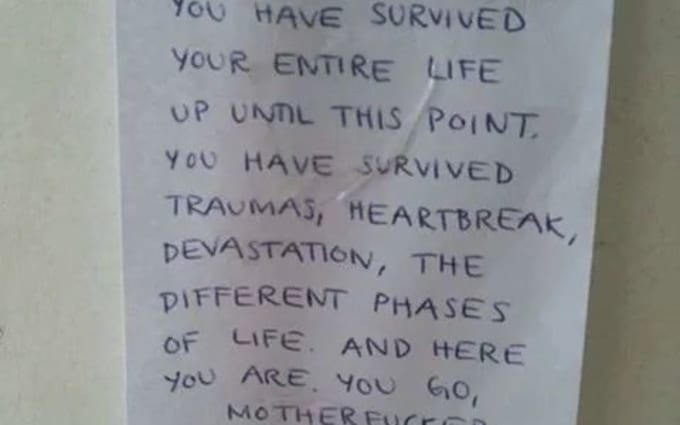 YOU HAVE SURVIVED
YOUR ENTIRE LIFE
UP UNTIL THIS POINT.
YOU HAVE SURVIVED
TRAUMAS, HEARTBREAK,
DEVASTATION, THE
DIFFERENT PHASES
OF LIFE. AND HERE
YOU ARE. YOU GO,
MOTHERFUCKER